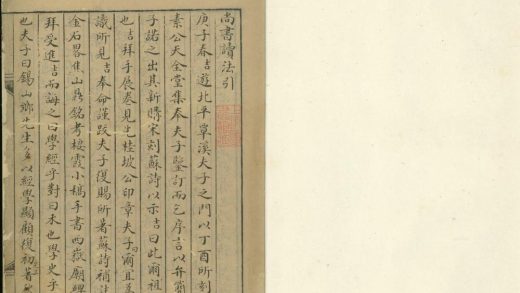 尚書讀法引
庚子春吉遊北平覃溪夫子之門以丁酉所刻
素公天全堂集奉夫子鑒訂而乞序言以弁簡
子諾之出其新購宋刻蘇詩以示吉曰此爾祖
也吉拜手展卷見先桂坡公印章夫子曰爾且
識所見吉奉命謹跋夫子復賜所著蘇詩補
金石畧焦山鼎銘考棲霞小稿手書西嶽廟碑
拜受進吉而誨之曰學經乎對曰未也學史乎
也夫子曰錫山鄉先生多以經學顯顧復初著